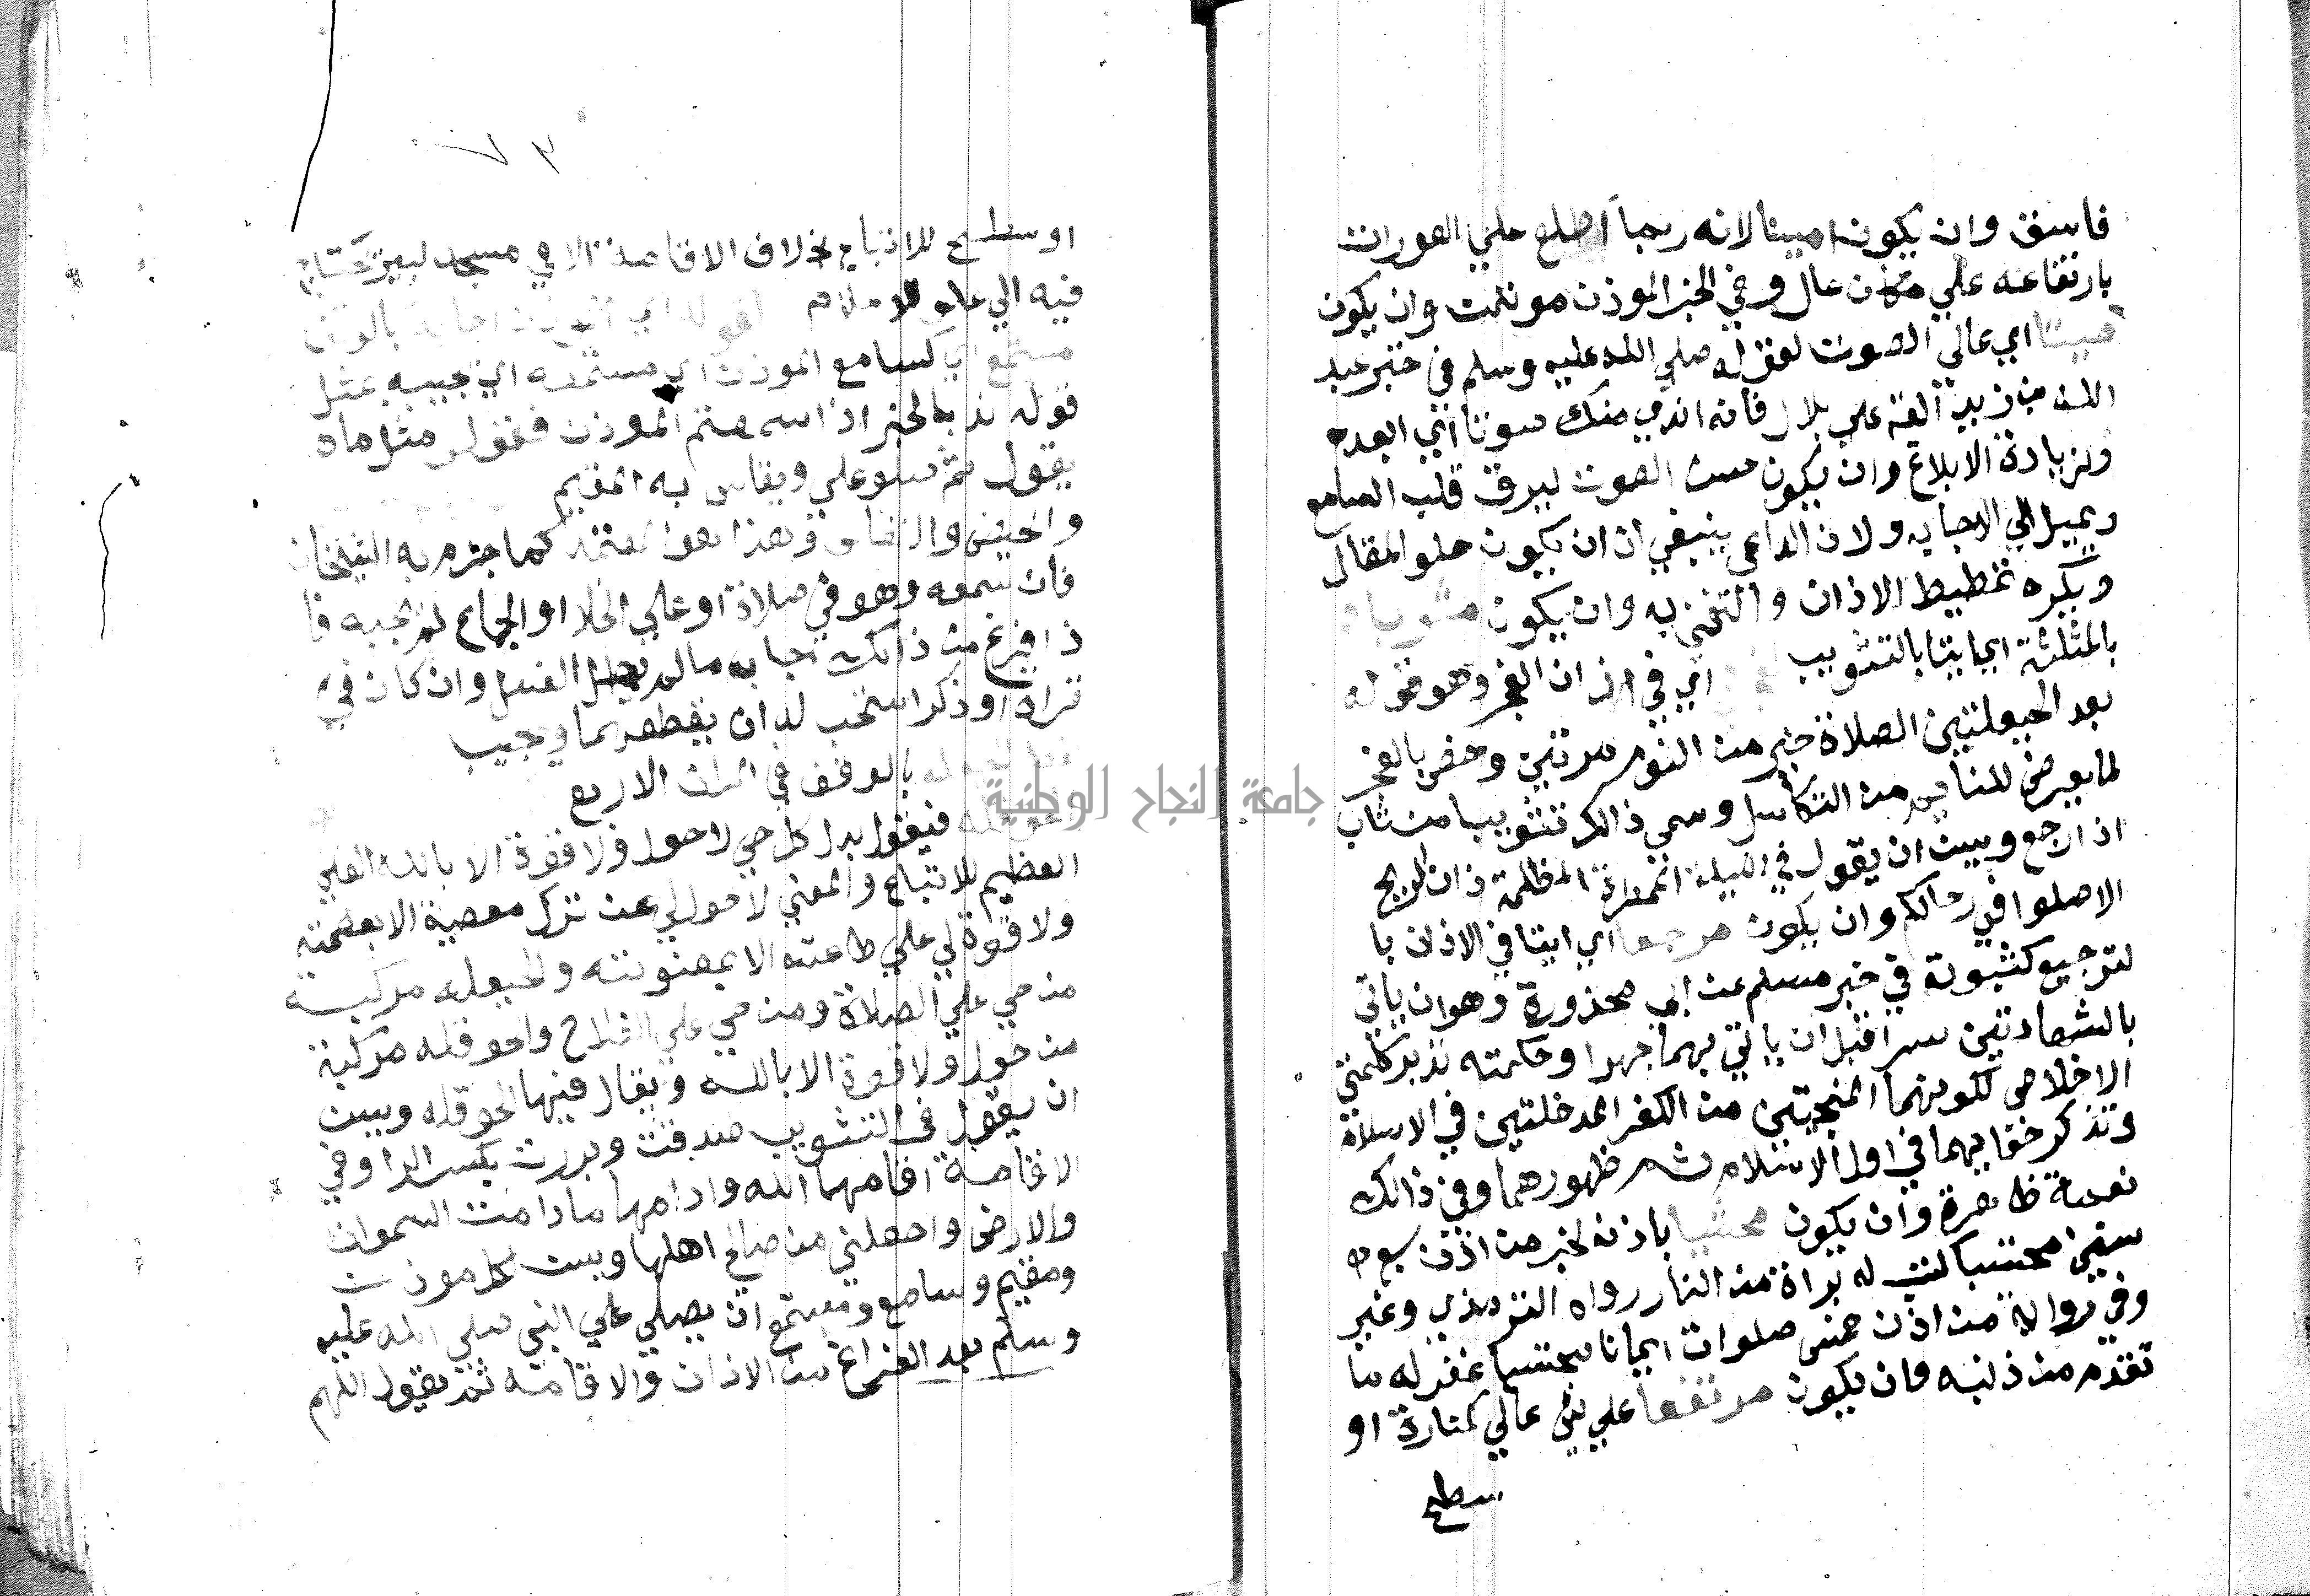 فاسق وان يكون امينا لانه ربما اطلع علي العورات
بارتفاعه علي مكان عال وفي الخبر الموذن موتمن وان يكون
صيتا اي عالي الصوت لقوله صلي الله عليه وسلم في خبر عبد
الله بن زيد القه علي بلال فانه اندي منك صوتا اي ابعد
ولزيادة الابلاغ وان يكون حسن الصوت ليرق قلب السامع
ويميل الي الاجابه ولان الداعي ينبغي ان ان يكون حلو المقال
ويكره تمطيط الاذان والتغني به وان يكون مثوبا
بالمثلثة اي اتيا بالتثويب اي في اذان الفجر وهو قوله
بعد الحيعلتين الصلاة خير من النوم مرتين وخص بالفجر
لما يعرض للنايم من التكاسل وسمي ذالك تثويبا من ثاب
اذا رجع ويسن ان يقول في الليلة الممطرة المظلمة ذات الريح
الا صلوا في رحالكم وان يكون مرجعا اي اتيا في الاذان با
لترجيع كثبوته في خبر مسلم عن ابي محذورة وهو ان ياتي
بالشهادتين سرا قبل ان ياتي بهما جهرا وحكمته تدبر كلمتي
الاخلاص لكونهما المنجيتين من الكفر المدخلتين في الاسلام
وتذكر خفايهما في اول الاسلام ثم ظهورهما وفي ذالك
نعمة ظاهرة وان يكون محتسبا باذنه لخبر من اذن سبع
سنين محتسبا كتب له براة من النار رواه الترمذي وغير
وفي رواية من اذن خمس صلوات ايمانا محتسبا غفر له ما
تقدم من ذنبه وان يكون مرتفعا علي شي عالي كمنارة او
سطح
٧٣
او سطح للاتباع بخلاف الاقامة الا في مسجد كبير تحتاج
فيه الي علو للاعلام
مستمع اي كسامع الموذن اي مستمعه اي يجيبه بمثل
قوله ندبا لخبر اذا سمعتم الموذن فقولوا مثل ما
يقول ثم صلو علي ويقاس به المقيم
والحيض والنفاس وهذا هو المعتمد كما جزم به الشيخان
فان سمعه وهو في صلاة او علي الخلا او الجماع لم يجبه فا
ذا فرغ من ذالك اجابه مالم يطل الفصل وان كان في
قراة او ذكر استحب له ان يقطعهما ويجيب
بالوقف في المرات الاربع
فيقول بدل كل حي لا حول ولا قوة الا بالله العلي
العظيم للاتباع والمعني لا حول لي عن ترك معصية الا بعصمته
ولا قوة لي علي طاعته الا بمعونته والحيعله مركبه
من حي علي الصلاة ومن حي علي الفلاح والحوقله مركبة
من حول ولا قوة الا بالله ويقال فيها الحوقله ويسن
ان يقول في التثويب صدقت وبررت بكسر الرا وفي
الاقامة اقامها الله وادامها ما دامت السموات
والارض واجعلني من صالح اهلها ويسن لكل موذن
ومقيم وسامع ومستمع ان يصلي علي النبي صلي الله عليه
وسلم بعد الفراغ من الاذان والاقامة ثم يقول اللهم
جامعة النجاح الوطنية